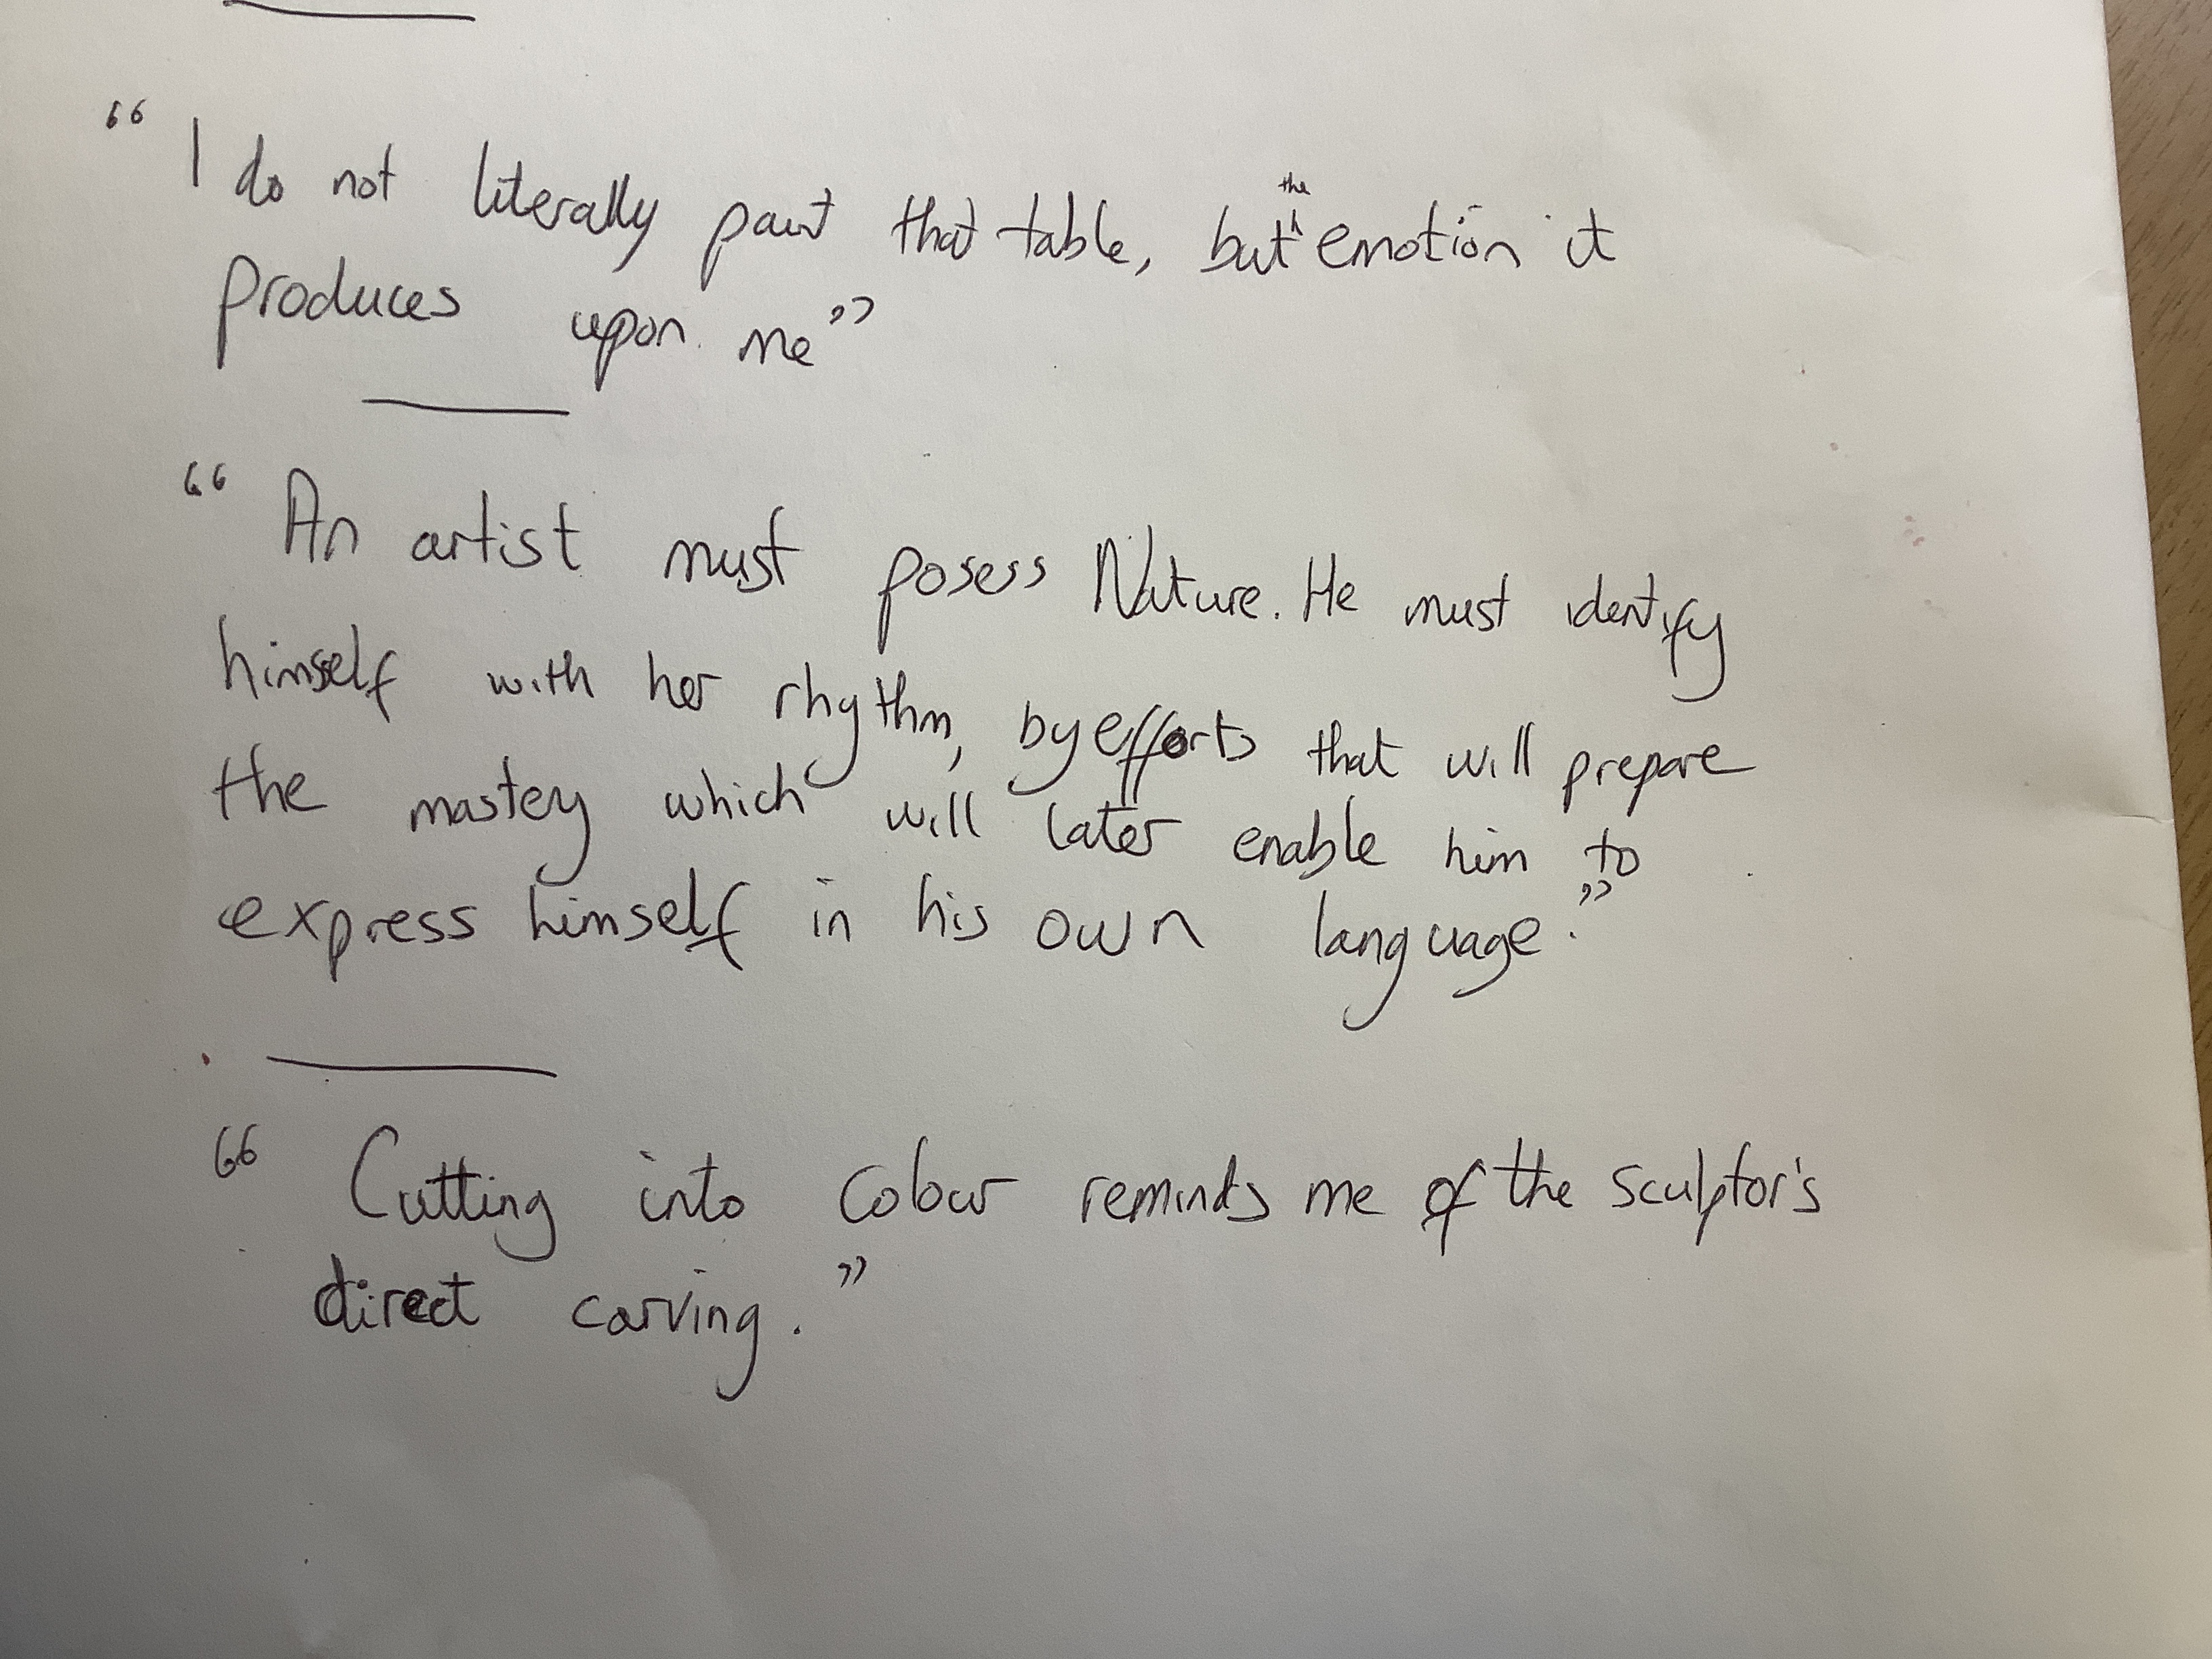 “I do not literally paint that table, but the emotion it
produces upon me”
“An artist must posess Nature. He must identify
himself with her rhythm, by efforts that will prepare
the mastery which will later enable him to
express himself in his own language.”
“Cutting into colour reminds me of the sculptor's
direct carving.”